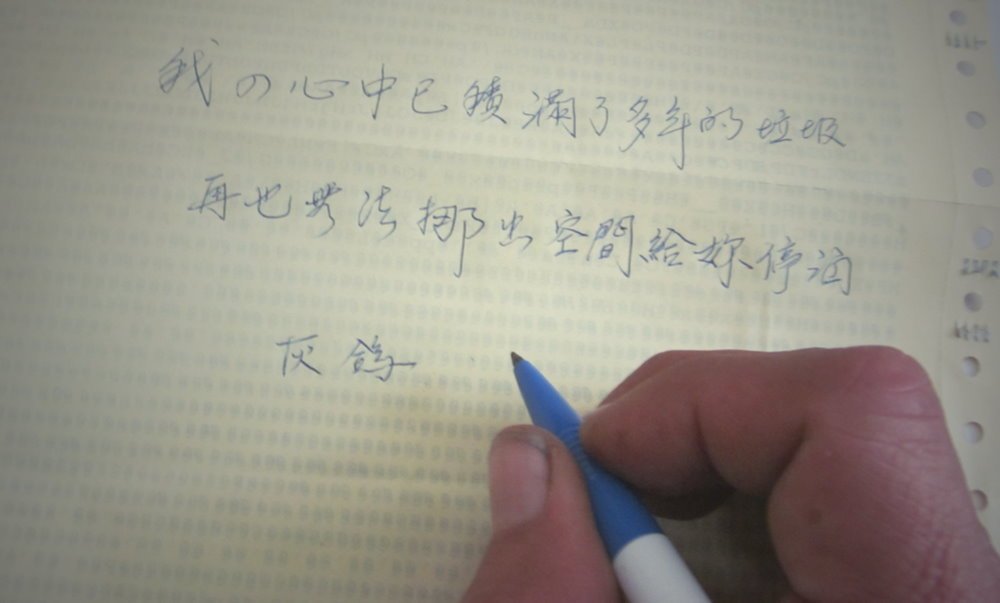 我の心中已積滿了多年的垃圾
再也無法挪出空間給妳停泊
灰鴿